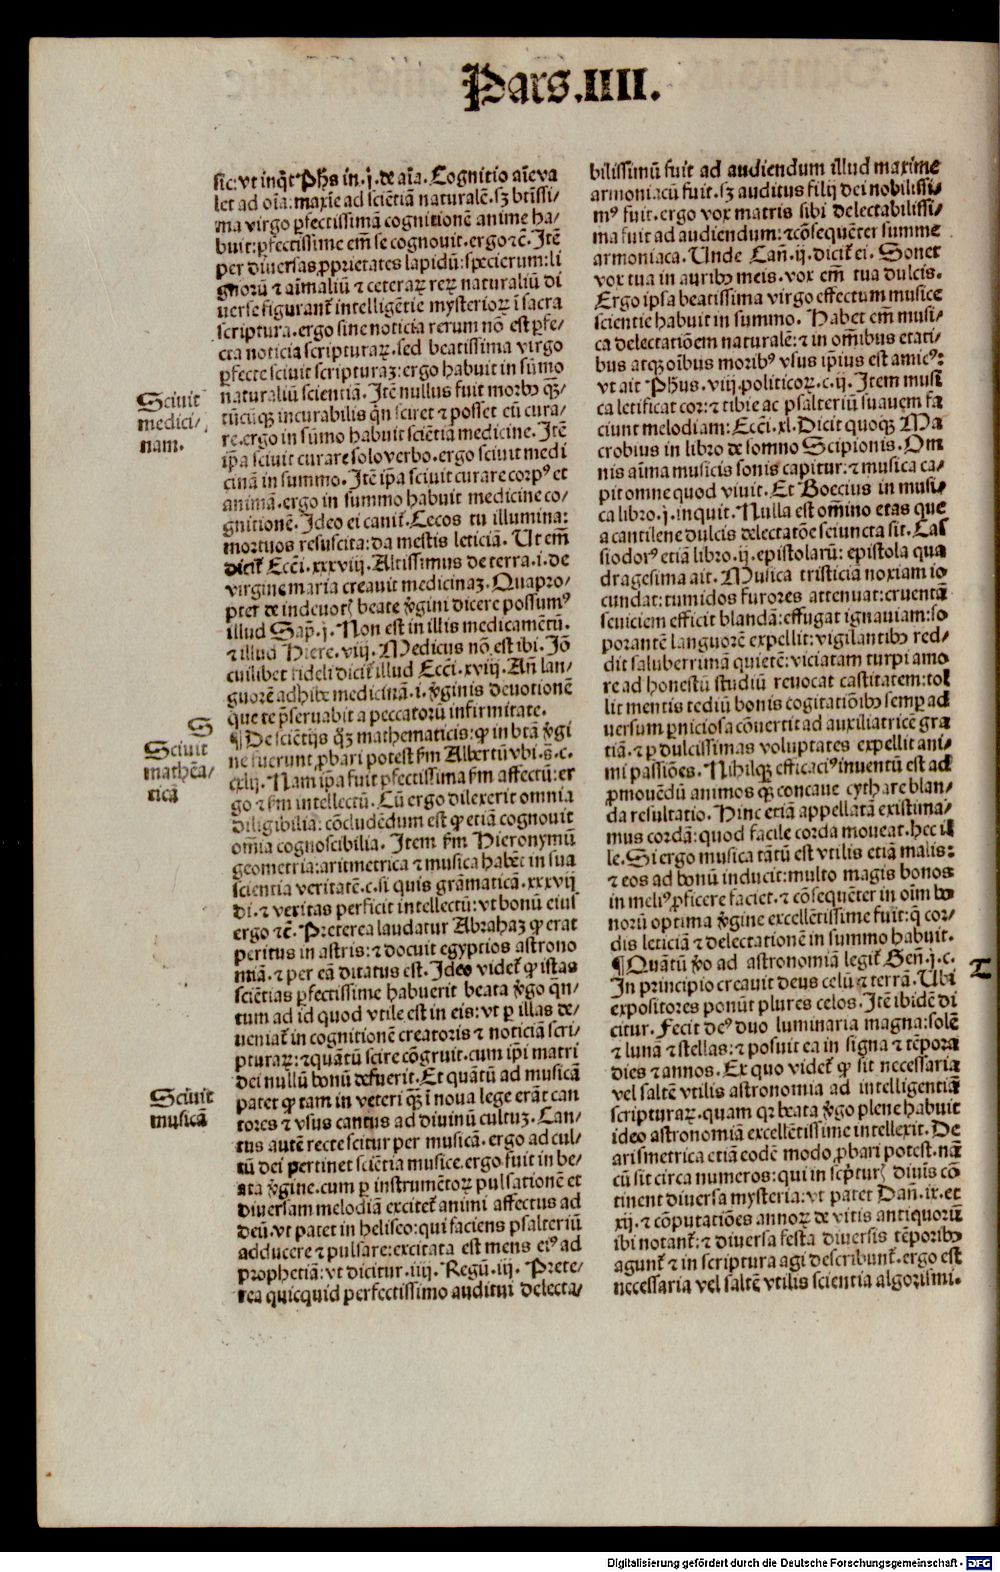 Pars.IIII.
sic: vt inq̃t Ph̃s in .j. de aĩa. Cognitio aĩe va
let ad oĩa: maxĩe ad sciẽtiã naturalẽ. sꝫ btĩssi-
ma virgo ꝑfectissimã cognitionẽ anime ha-
buit: ꝑfectissime em̃ se cognovit. ergo ⁊c̃. Itẽ
per diversas ꝓprietates lapidũ: specierum: li
gnorũ ⁊ aĩmaliũ ⁊ ceteraꝝ reꝝ naturaliũ di
uerse figurant̃ intelligẽtie mysterioꝝ ĩ sacra
scriptura. ergo sine noticia rerum nõ est ꝑfe-
cta noticia scripturaꝝ. sed beatissima virgo
ꝑfecte sciuit scripturaꝫ: ergo habuit in sũmo
naturaliũ scientiã. Itẽ nullus fuit morbꝰ q̃ꝫ-
tũcũqꝫ incurabilis q̃n sciret ⁊ posset eũ cura-
re. ergo in sũmo habuit sciẽtiã medicine. Itẽ
ip̃a sciuit curare solo verbo. ergo sciuit medi
cinã in summo. Itẽ ip̃a sciuit curare corpꝰ et
animã. ergo in summo habuit medicine co-
gnitionẽ. Ideo ei canit̃. Cecos tu illumina:
mortuos resuscita: da mestis leticiã. Ut em̃
dicit̃ Ecc̃i. xxxviij. Altissimus de terra .i. de
virgine maria creauit medicinaꝫ. Quapro-
pter de indevotꝭ beate ṽgini dicere possumꝰ
illud Sap̃. j. Non est in illis medicamẽtũ.
⁊ illud Hiere. viij. Medicus nõ est ibi. Jõ
cuilibet fideli dicit̃ illud Ecc̃i. xviij. Añ lan-
guorẽ adhibe medicinã .i. ṽginis deuotionẽ
que te p̃seruabit a peccatorũ infirmitate.
¶ De sciẽtijs q̃ꝫ mathematicis: ꝙ in btã ṽgi
ne fuerunt ꝓbari potest fm̃ Albertũ vbi .s̃. c.
cxlij. Nam ip̃a fuit ꝑfectissima fm̃ affectũ: er
go ⁊ fm̃ intellectũ. Cũ ergo dilexerit omnia
diligibilia: cõcludẽdum est ꝙ etiã cognouit
omnia cognoscibilia. Item fm̃ Hieronymũ
geometria: aritmetrica ⁊ musica habẽt in sua
scientia veritatẽ. c. si quis grãmaticã. xxxvij
di. ⁊ veritas perficit intellectũ: vt bonũ eius
ergo ⁊c̃. Preterea laudatur Abrahaꝫ ꝙ erat
peritus in astris: ⁊ docuit egyptios astrono
miã. ⁊ per eã ditatus est. Ideo videt̃ ꝙ istas
sciẽtias ꝑfectissime habuerit beata ṽgo q̃n-
tum ad id quod vtile est in eis: vt ꝑ illas de-
ueniat̃ in cognitionẽ creatoris ⁊ noticiã scri-
pturaꝝ: ⁊ quãtũ scire cõgruit. cum ip̃i matri
dei nullũ bonũ defuerit. Et quãtũ ad musicã
patet ꝙ tam in veteri q̃ꝫ ĩ noua lege erãt can
tores ⁊ vsus cantus ad diuinũ cultuꝫ. Can-
tus autẽ recte scitur per musicã. ergo ad cul-
tũ dei pertinet sciẽtia musice. ergo fuit in be-
ata ṽgine. cum ꝑ instrumẽtoꝝ pulsationẽ et
diuersam melodiã excitet̃ animi affectus ad
deũ. vt patet in heliseo: qui faciens psalteriũ
adducere ⁊ pulsare: excitata est mens eiꝰ ad
prophetiã: vt dicitur .iiij. Regũ. iij. Prete-
rea quicquid perfectissimo auditui delecta-
Sciuit
medici-
nam.
S
Sciuit
mathẽa-
ticã
Sciuit
musicã
bilissimũ fuit ad audiendum illud maxime
armoniacũ fuit. sꝫ auditus filij dei nobilissi-
mꝰ fuit. ergo vox matris sibi delectabilissi-
ma fuit ad audiendum: ⁊ cõsequẽter summe
armoniaca. Unde Cañ. ij. dicit̃ ei. Sonet
vox tua in auribꝰ meis. vox em̃ tua dulcis.
Ergo ipsa beatissima virgo effectum musice
scientie habuit in summo. Habet em̃ musi-
ca delectatiõem naturalẽ: ⁊ in om̃ibus etati-
bus atqꝫ oĩbus moribꝰ vsus ip̃ius est amicꝰ:
vt ait Ph̃us. viij. politicoꝝ. c. ij. Item musi
ca letificat cor: ⁊ tibie ac psalteriũ suauem fa
ciunt melodiam: Ecc̃i. xl. Dicit quoqꝫ Ma
crobius in libro de somno Scipionis. Om
nis aĩma musicis sonis capitur: ⁊ musica ca-
pit omne quod viuit. Et Boecius in musi-
ca libro .j. inquit. Nulla est om̃ino etas que
a cantilene dulcis delectatõe seiuncta sit. Cas
siodorꝰ etiã libro .ij. epistolarũ: epistola qua
dragesima ait. Musica tristiciã noxiam io
cundat: tumidos furores attenuat: cruentã
seuiciem efficit blandã: effugat ignauiam: so
porantẽ languorẽ expellit: vigilantibꝰ red-
dit saluberrimã quietẽ: viciatam turpi amo
re ad honestũ studiũ reuocat castitatem: tol
lit mentis tediũ bonis cogitatiõibꝰ semꝑ ad
versum ꝑniciosa cõvertit ad auxiliatricẽ gra
tiã. ⁊ ꝑ dulcissimas voluptates expellit ani-
mi passiões. Nihilqꝫ efficaciꝰ inuentũ est ad
ꝓmouẽdũ animos q̃ꝫ concaue cythare blan-
da resultatio. Hinc etiã appellatã existima-
mus cordã: quod facile corda moueat. hec il
le. Si ergo musica tãtũ est vtilis etiã malis:
⁊ eos ad bonũ inducit: multo magis bonos
in meliꝰ ꝓficere faciet. ⁊ cõsequẽter in oĩm bo
norũ optima ṽgine excellẽtissime fuit: q̃ cor-
dis leticiã ⁊ delectationẽ in summo habuit.
¶ Quãtũ ṽo ad astronomiã legit̃ Geñ. j. c.
In principio creauit deus celũ ⁊ terrã. Ubi
expositores ponũt plures celos. Itẽ ibidẽ di
citur. Fecit deꝰ duo luminaria magna: solẽ
⁊ lunã ⁊ stellas: ⁊ posuit ea in signa ⁊ tẽpora
dies ⁊ annos. Ex quo videt̃ ꝙ sit necessaria
vel saltẽ vtilis astronomia ad intelligentiã
scripturaꝝ. quam qꝛ beata ṽgo plene habuit
ideo astronomiã excellẽtissime intellexit. De
arismetrica etiã eodẽ modo ꝓbari potest. nã
cũ sit circa numeros: qui in scp̃turꝭ diuĩs cõ
tinent diuersa mysteria: vt patet Dañ. ix. et
xij. ⁊ cõputatiões annoꝝ de vitis antiquorũ
ibi notant̃: ⁊ diuersa festa diuersis tẽporibꝰ
agunt̃ ⁊ in scriptura agi describunt̃. ergo est
necessaria vel saltẽ vtilis scientia algorismi.
T
Digitalisierung gefördert durch die Deutsche Forschungsgemeinschaft - DFG